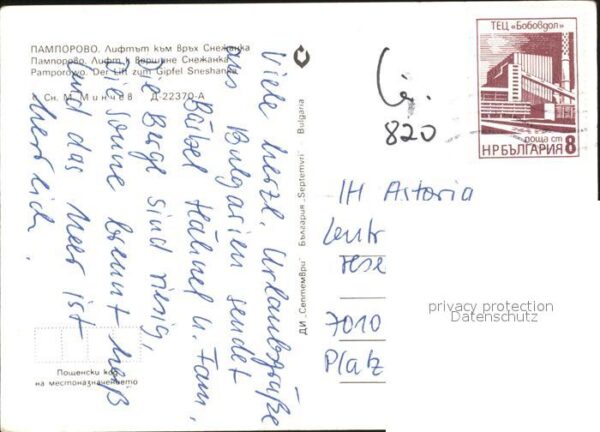 ПАМПОРОВО. Лифтът към връх Снежанка
Пампорово. Лифт к вершине Снежанка
Pamporowo. Der Lift zum Gipfel Sneshanka
Сн. М. Минчев Д-22370-А
Viele herzl. Urlaubsgrüße
aus Bulgarien sendet
Bärbel Hähnel u. Fam.
Die Berge sind riesig,
die Sonne brennt heiß
und das Meer ist
herrlich.
Пощенски код
на местоназначението
ДИ „Септември" България „Septemvri" Bulgaria
ТЕЦ „Бобовдол"
поща ст
НР БЪЛГАРИЯ 8
820
IH Astoria
Zentr
Hese
7010
Platz
privacy protection
Datenschutz